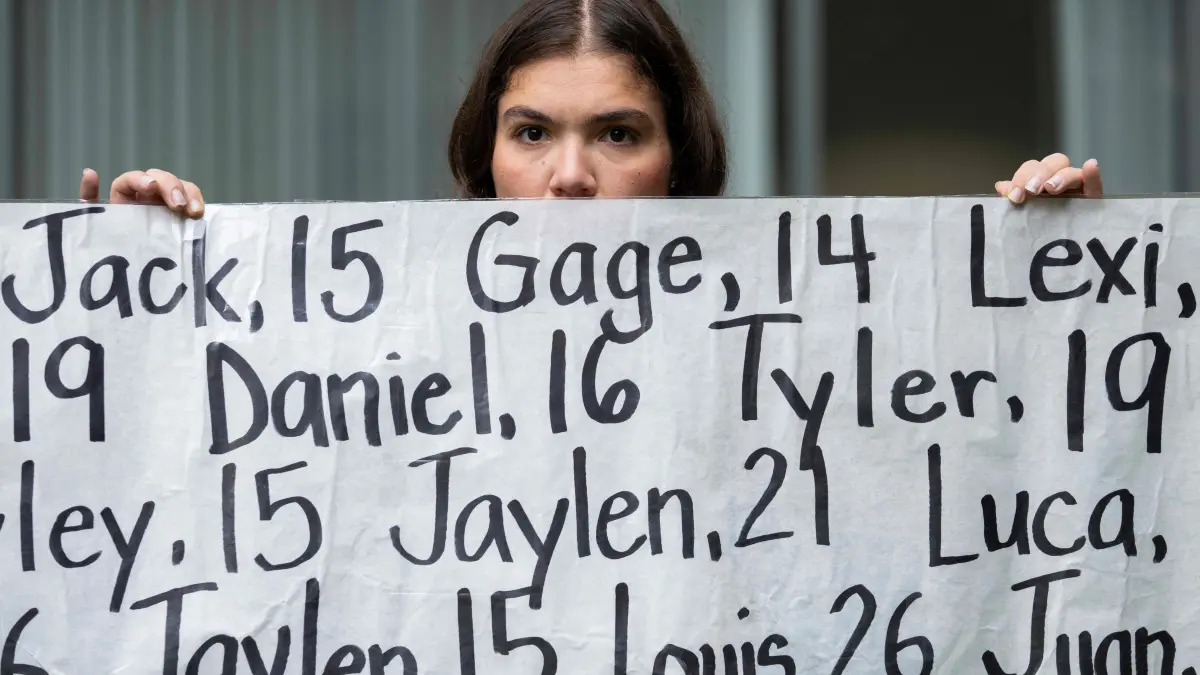 Jack, 15 Gage, 14 Lexi,
19 Daniel, 16 Tyler, 19
ley, 15 Jaylen, 21 Luca,
6 Jaylen 15 Louis 26 Juan,